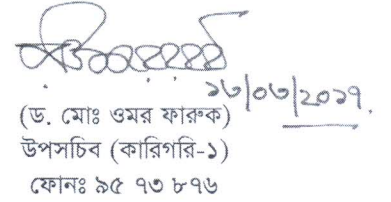 ১৬/০৩/২০১৭.
(ড. মোঃ ওমর ফারুক)
উপসচিব (কারিগরি-১)
ফোনঃ ৯৫ ৭৩ ৮৭৬